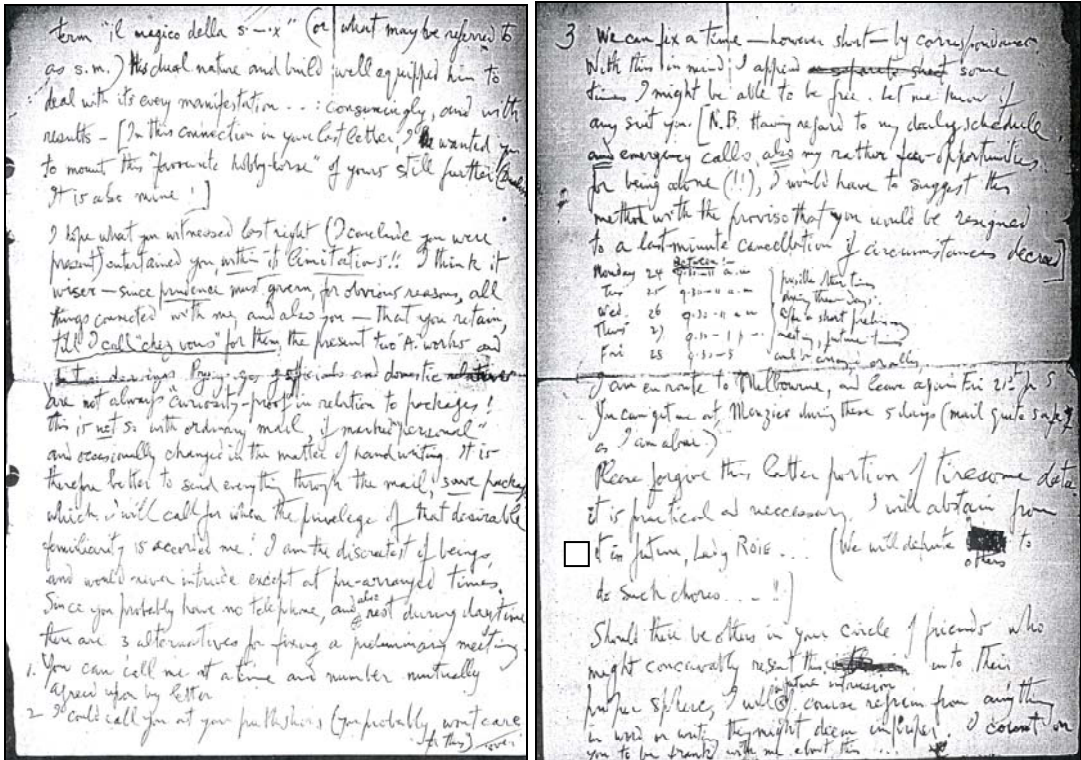 term "il magico della s.-.x" (or what may be referred to
as s.m.) His dual nature and build well equipped him to
deal with its every manifestation ...: consumingly, and with
results - [In this connection in your last letter, I wanted you
to mount this "favourite hobby-horse" of yours still further
It is also mine!]
I hope what you witnessed last night (I conclude you were
present) entertained you, within its limitations!! I think it
wiser - since prudence must govern, for obvious reasons, all
things connected with me, and also you - that you retain,
till I call "chez vous" for them, the present two A. works and
officials and domestic
are not always "curiosity-proof" in relation to packages!
this is not so with ordinary mail, if marked "personal"
and occasionally changed in the matter of handwriting. It is
therefore better to send everything through the mail, save packages
which I will call for when the privelege of that desirable
familiarity is accorded me. I am the discreetest of beings,
and would never intrude except at pre-arranged times.
Since you probably have no telephone, and also rest during daytime
there are 3 alternatives for fixing a preliminary meeting.
1. You can call me at a time and number mutually
agreed upon by letter
2 I could call you at your publishers (you probably wont care
for this) over
3 We can fix a time - however short - by correspondence.
With this in mind, I append a separate sheet some
times I might be able to be free. Let me know if
any suit you. [N.B. Having regard to my daily schedule,
and emergency calls, also my rather few opportunities
for being alone (!!), I would have to suggest this
method with the proviso that you would be resigned
to a last-minute cancellation if circumstances decreed]
Between:-
Monday 24 9.30-11 a.m
Tue 25 9.30-11 a.m
Wed. 26 9.30-11 a.m
Thurs 27 9.30-1 p.
Fri 28 9.30-5
possible other times
during these days.
after a short prelim
meeting, future times
could be arranged orally
I am en route to Melbourne, and leave again Fri 21st
You can get me at Menzies during these 5 days (mail quite safe
as I am alone.)
Please forgive this latter portion of tiresome data.
it is practical and neccessary. I will abstain from
it in future, Lady ROIE... (We will depute to
others
do such chores...!!]
Should there be others in your circle of friends who
might conceivably resent this into their
future intrusion
proper sphere, I will of course refrain from anything
in word or writing they might deem improper. I count on
you to be frank with me about this ...